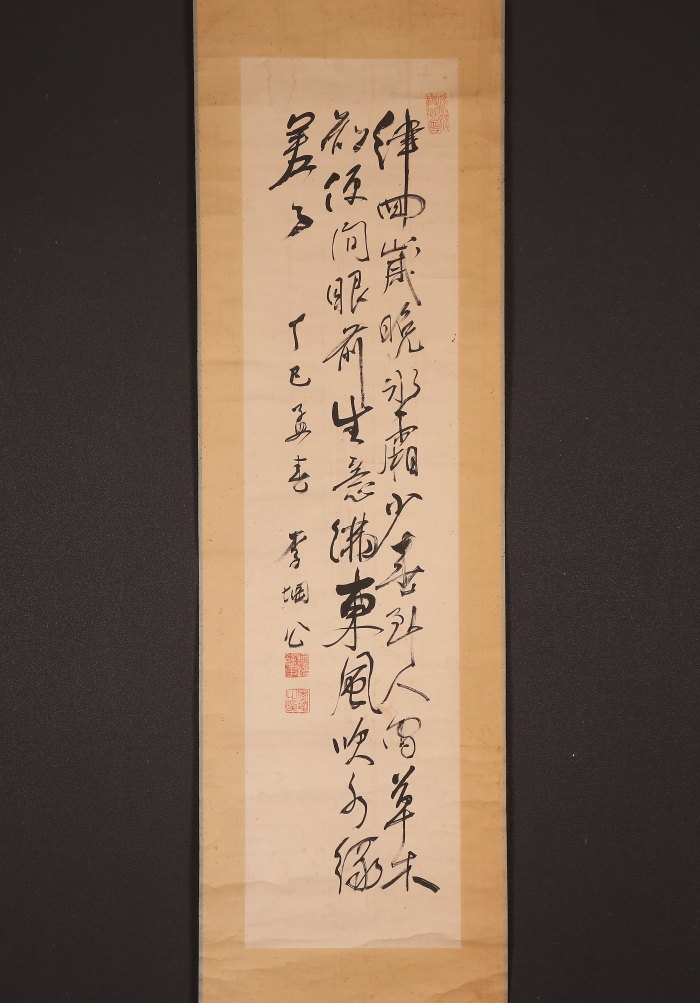 律回歲晚冰霜少春到人間草木
知便向眼前生意滿東風吹水綠
差差
丁巳孟春 李堈公